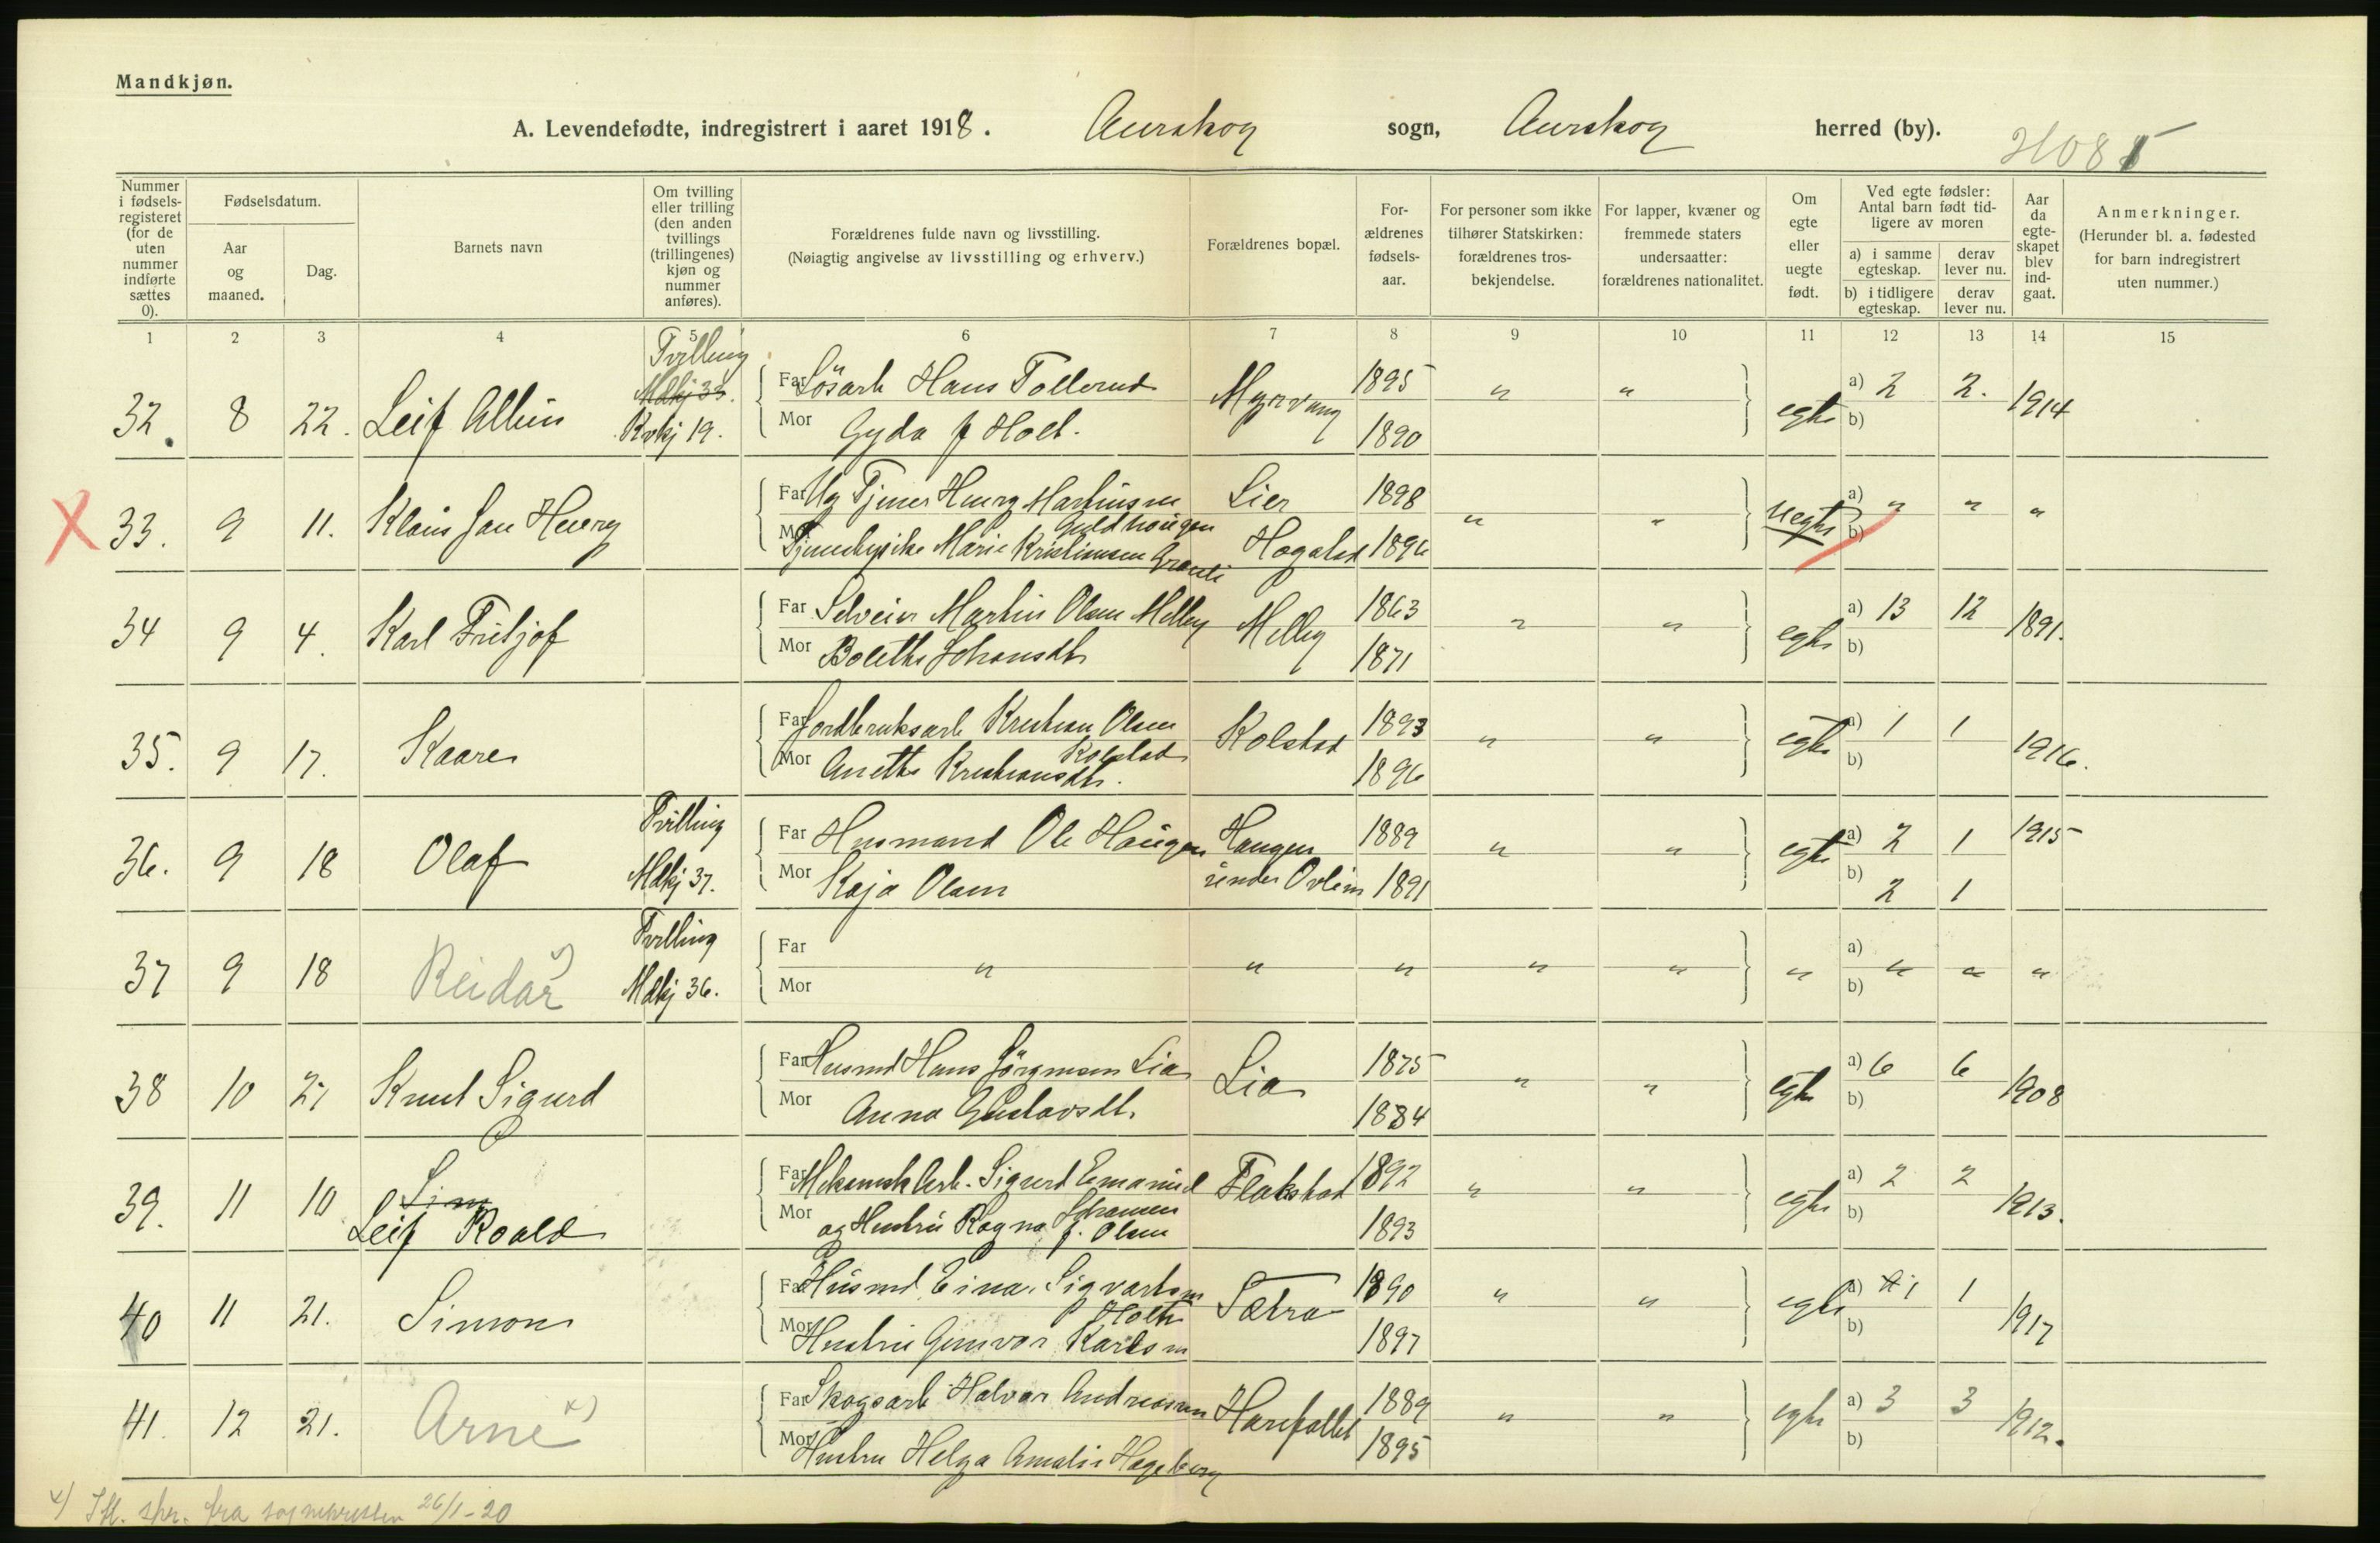 Mandkjøn.
A. Levendefødte, indregistrert i aaret 1918. Aurskog sogn, Aurskog herred (by).
Nummer i fødselsregisteret (for de uten nummer indførte sættes 0).
Fødselsdatum.
Aar og maaned.
Dag.
Barnets navn
Om tvilling eller trilling (den anden tvillings (trillingenes) kjøn og nummer anføres).
Forældrenes fulde navn og livsstilling.
(Nøiagtig angivelse av livsstilling og erhverv.)
Forældrenes bopæl.
Forældrenes fødselsaar.
For personer som ikke tilhører Statskirken: forældrenes trosbekjendelse.
For lapper, kvæner og fremmede staters undersaatter: forældrenes nationalitet.
Om egte eller uegte født.
Ved egte fødsler: Antal barn født tidligere av moren
a) i samme egteskap. derav lever nu.
b) i tidligere egteskap. derav lever nu.
Aar da egteskapet blev indgaat.
Anmerkninger.
(Herunder bl. a. fødested for barn indregistrert uten nummer.)
1 2 3 4 5 6 7 8 9 10 11 12 13 14 15
32. 8 22. Leif Tvilling Mdkj 33. Kvkj 19.
Far Løsarb Hans Tollerud Myrvang 1895 " " egte a) 2 2. 1914
Mor Gyda f Holt. 1890 b)
33. 9 11. Klaus Jan Henry
Far Ug Tjener Henry Martinsen Guldhaugen Lier 1898 " " uegte a) " " "
Mor Tjenestepike Marie Kristiansen Hogalsd 1896 b)
34 9 4. Karl Fritjof
Far Selveier Martin Olsen Melby Melby 1863 " " egte a) 13 12 1891.
Mor Bolette Johansdt 1871 b)
35. 9 17. Kaare
Far Jordbruksarb Kristian Olsen Kolstad Kolstad 1893 " " egte a) 1 1 1916.
Mor Anette Kristiansdt. 1896 b)
36. 9 18 Olaf Tvilling Mdkj 37.
Far Husmand Ole Haugen Haugen 1889 " " egte a) 2 1 1915
Mor Kaja Olsen under 1891 b) 2 1
37 9 18 Reidar x) Tvilling Mdkj 36.
Far " " " " " " a) " " "
Mor b)
38 10 27 Knut Sigurd
Far Husmd Hans Jörgensen Lia Lia 1875 " " egte a) 6 6 1908
Mor Anna Gustavsdt. 1884 b)
39. 11 10 Sim Leif Roald
Far Mekanisk Arb. Sigurd Emanuel Johansen Flakstad 1892 " " egte a) 2 2 1913.
Mor og Hustru Ragna f. Olsen 1893 b)
40 11 21. Simon
Far Husmd. Einar Sigvartsen Holte Sætra 1890 " " egte a) 1 1 1917
Mor Hustru Gunvor Karlsen 1897 b)
41. 12 21. Arne x)
Far Skogsarb Halvor Andreassen Harefallet 1889 " " egte a) 3 3 1912.
Mor Hustru Helga Amalie Hageberg 1895 b)
x) Ifl. skr. fra sognepresten 26/1-20